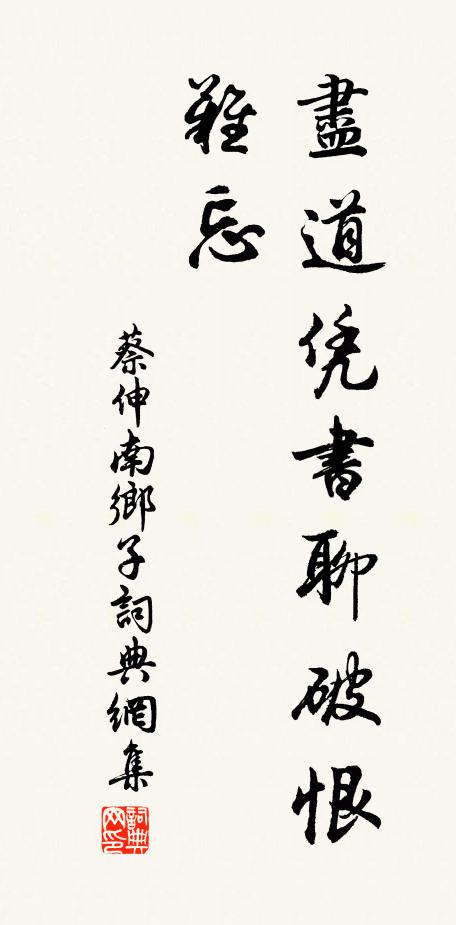 盡道凭書聊破恨
難忘
蔡伸南鄉子詞典網集
詞典
网印